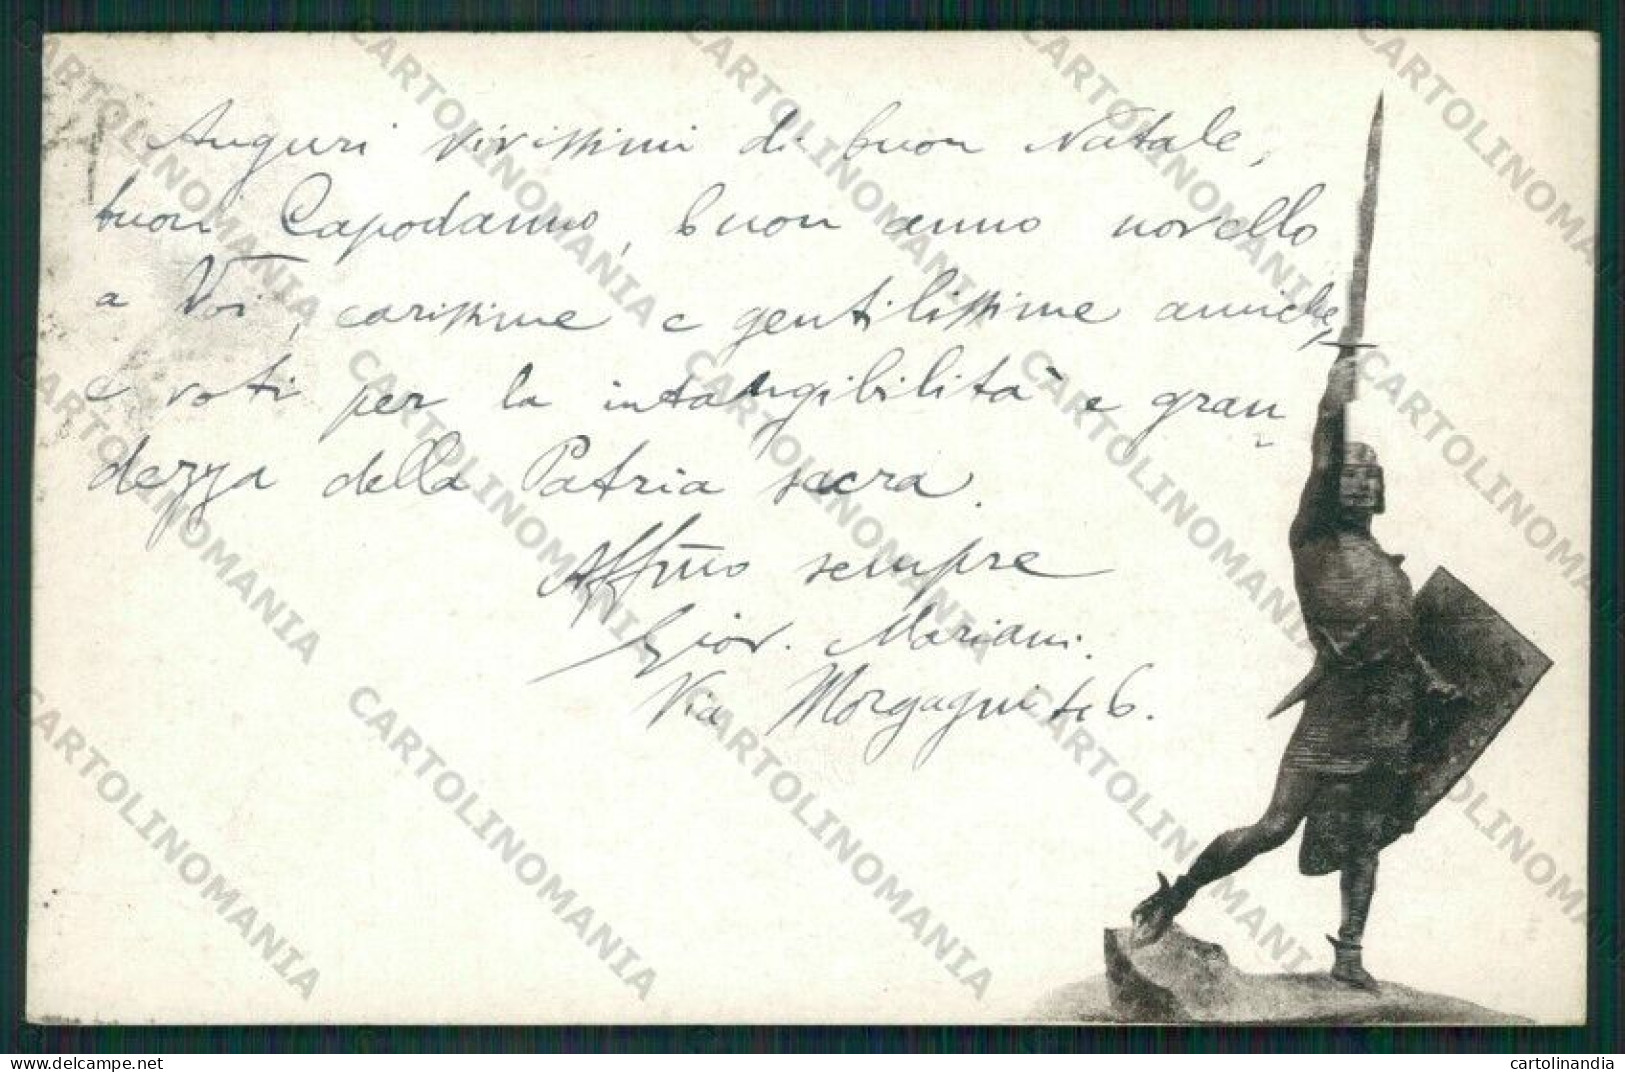 Auguri vivissimi di buon Natale,
buon Capodanno, buon anno novello
a Voi, carissime e gentilissime amiche,
e voti per la intangibilità e gran
dezza della Patria sacra.
Affmo sempre
Giov. Mariani.
Via Morgagni 6.
www.delcampe.net
cartolinandia
CARTOLINOMANIA